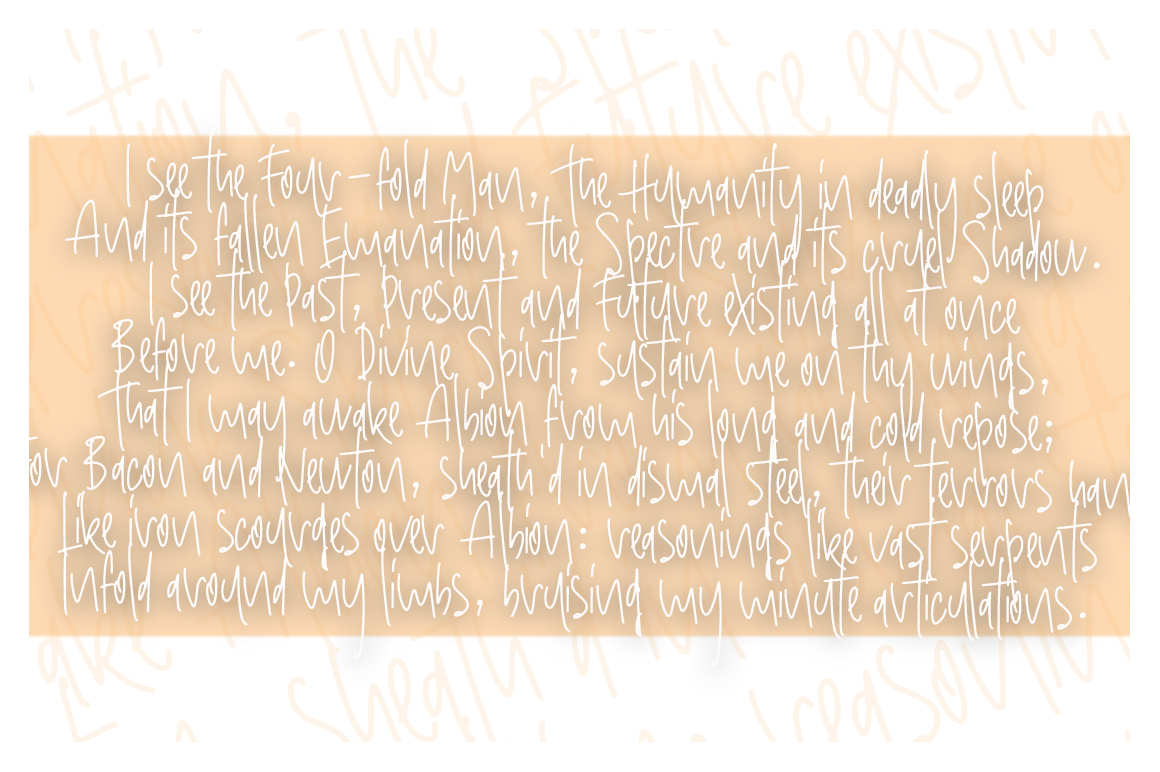 I see the Four-fold Man, the Humanity in deadly sleep
And its fallen Emanation, the Spectre and its cruel Shadow.
I see the Past, Present and Future existing all at once
Before me. O Divine Spirit, sustain me on thy wings,
That I may awake Albion from his long and cold repose;
For Bacon and Newton, sheath'd in dismal steel, their terrors han
Like iron scourges over Albion: reasonings like vast serpents
Infold around my limbs, bruising my minute articulations.